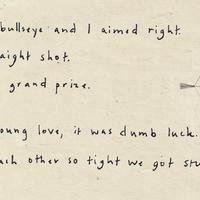 bullseye and I aimed right.
aight shot.
grand prize.
oung love, it was dumb luck.
ach other so tight we got stu